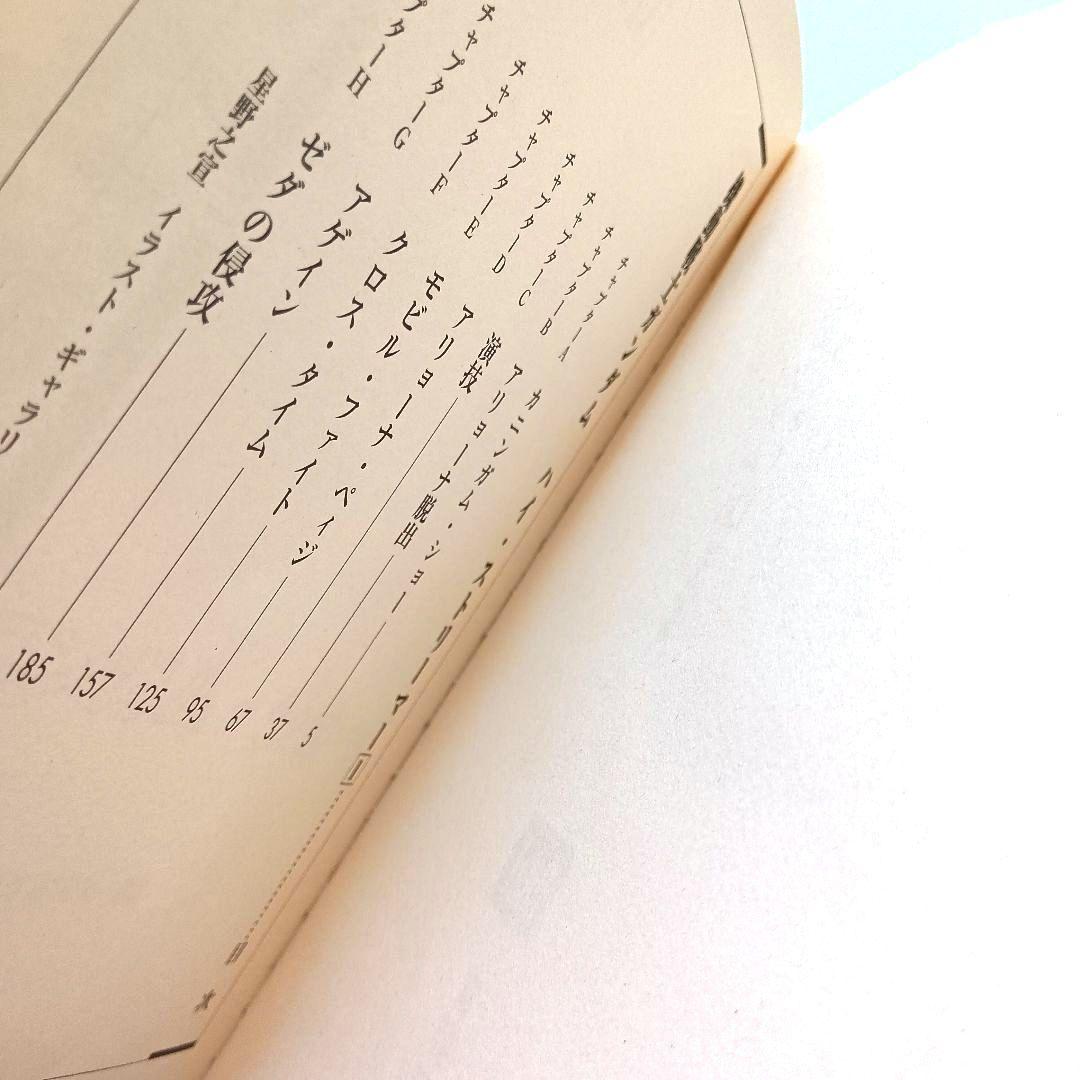 機動戦士ガンダム ハイ・ストリーマー 1 目次
チャプターA カニンガム・ショー 5
チャプターB アリョーナ脱出 37
チャプターC 演技 67
チャプターD アリョーナ・ペイジ 95
チャプターE モビル・ファイト 125
チャプターF クロス・タイム 157
チャプターG アゲイン 185
プターH ゼダの侵攻
星野之宣 イラスト・ギャラリ